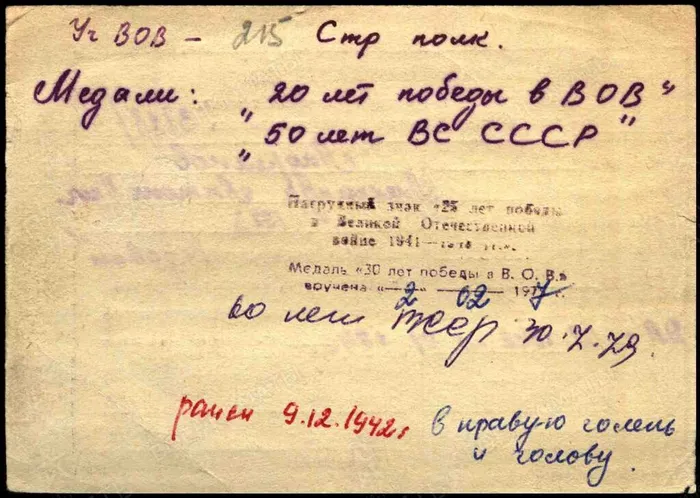 Уч ВОВ - 215 Стр полк.
Медали: "20 лет победы в ВОВ"
"50 лет ВС СССР"
Нагрудный знак «25 лет победы
в Великой Отечественной
войне 1941—1945 гг.».
Медаль «30 лет победы в В. О. В.»
вручена «2» 02 1977 г.
60 лет 30.7.79.
ранен 9.12.1942г в правую голень
и голову.